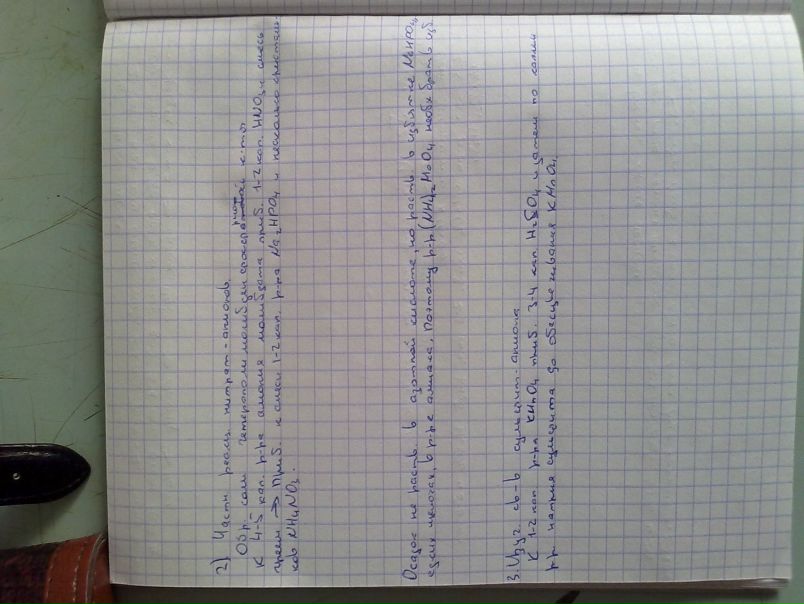 2) Частн. реакц. нитрат-анионов.
Обр. соли гетерополимолибден фосфорной к-ты
К 4-5 кап. р-ра амония молибдата приб. 1-2 кап. HNO3 и смесь
греем → Приб. к смеси 1-2 кап. р-ра Na2HPO4 и несколько кристалли-
ков NH4NO3.
Осадок не раств. в азотной кислоте, но раств. в избытке Na2HPO4,
едких щелочах, в р-ре амиака, Поэтому р-р (NH4)2MoO4 необх брать изб.
3. Изуч. св-в сульфит-аниона
К 1-2 кап. р-ра KMnO4 приб. 3-4 кап. H2SO4 и затем по капли
р-р натрия сульфита до обесцвечивания KMnO4